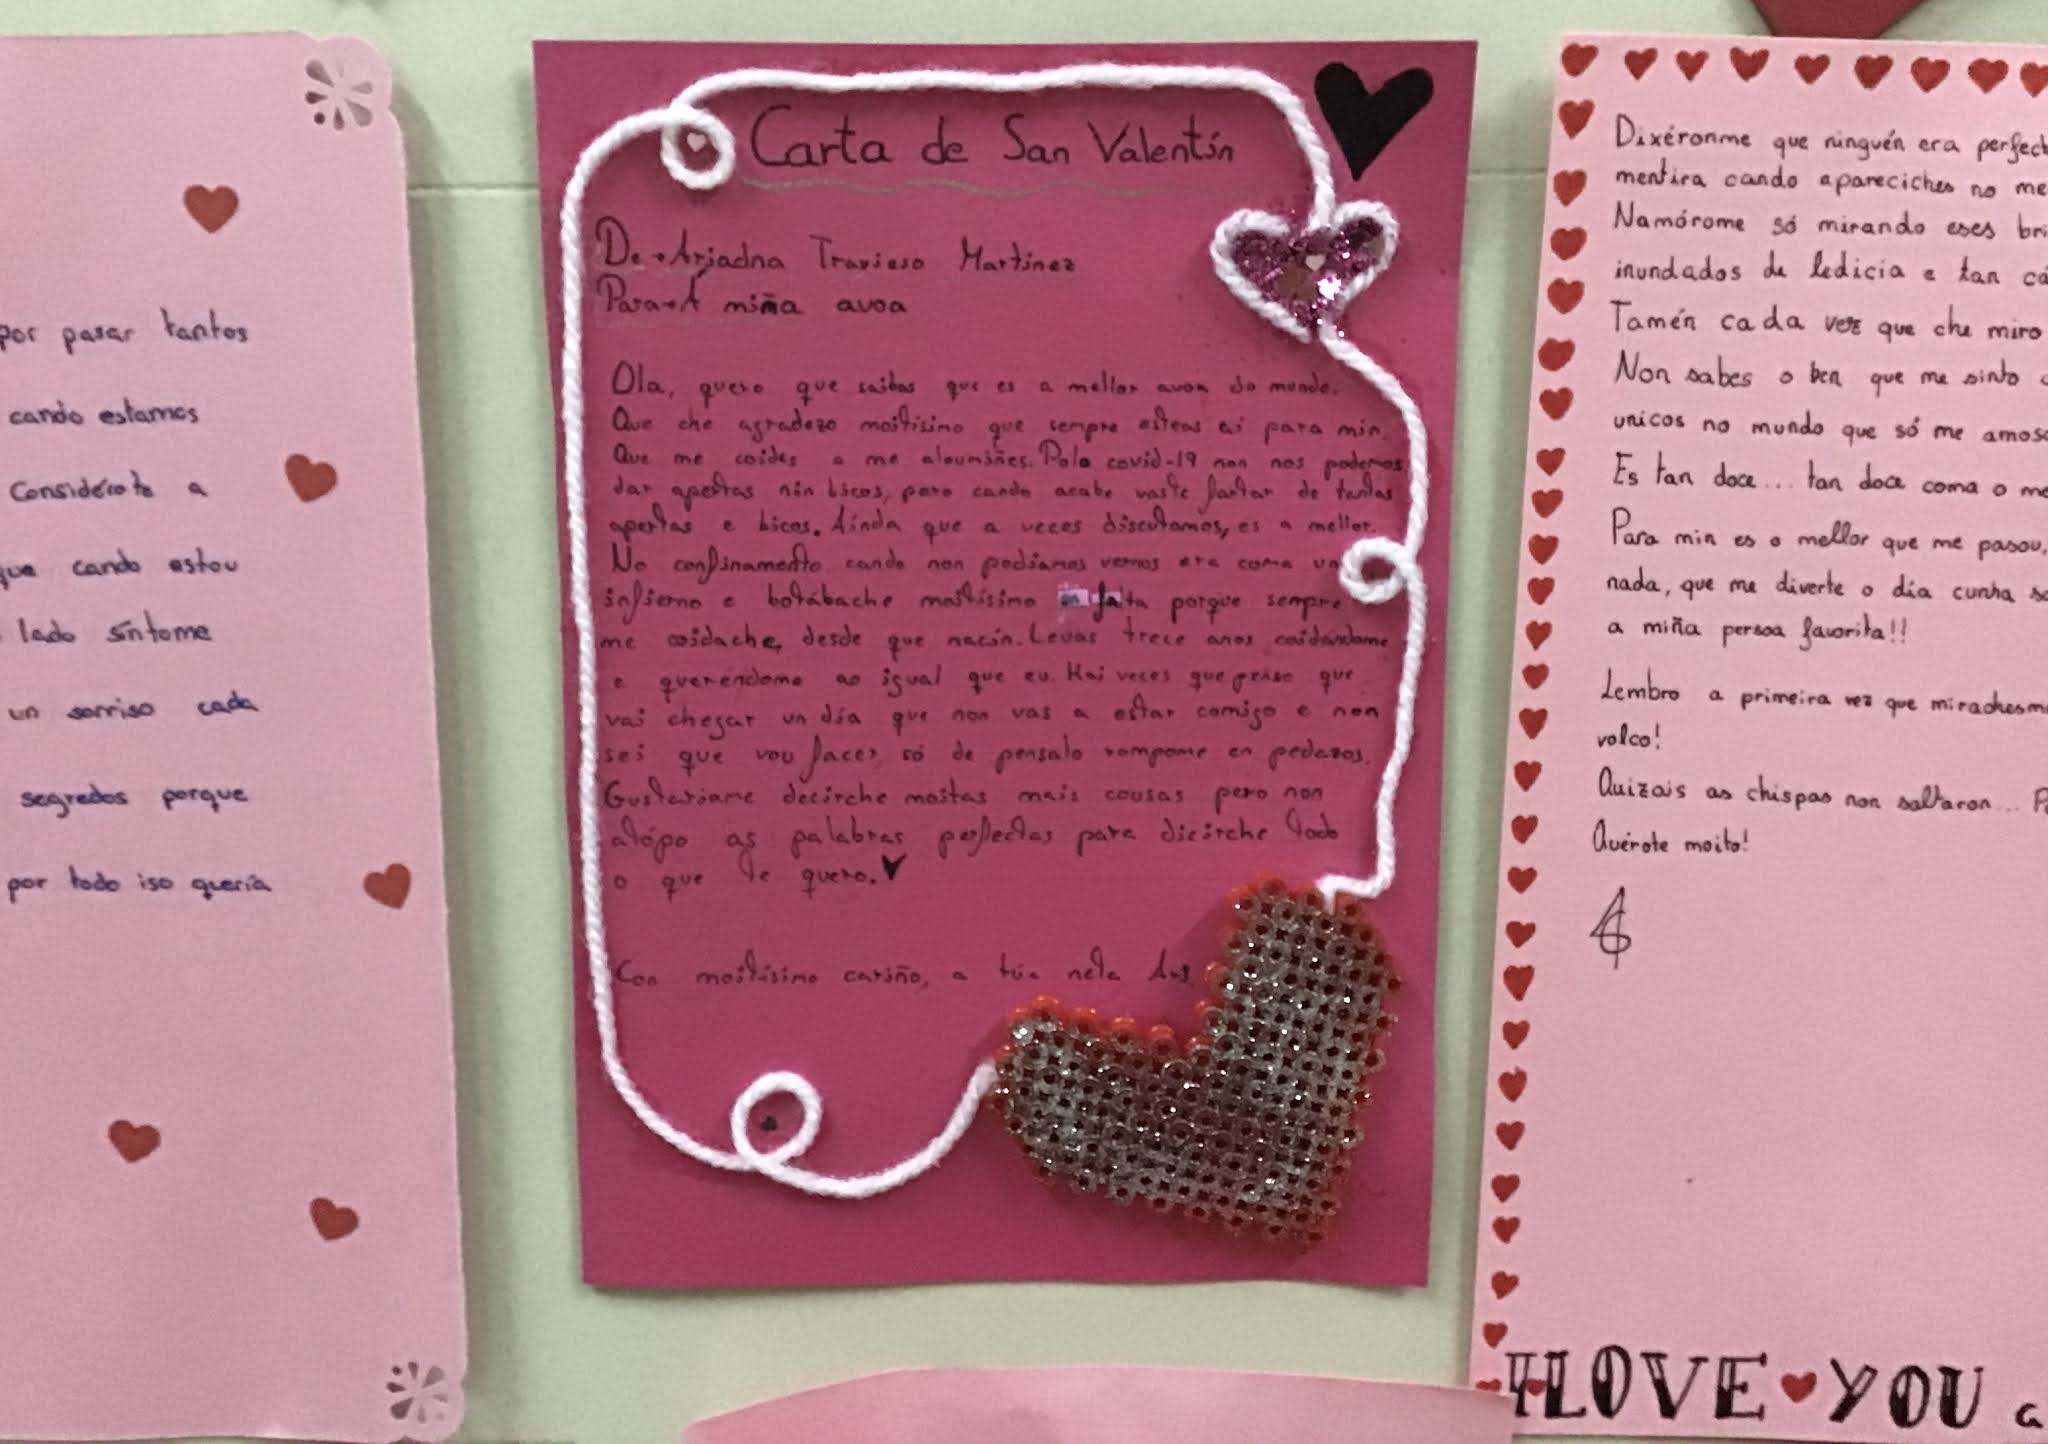 por pasar tantos
cando estamos
Considérote a
que cando estou
lado síntome
un sorriso cada
segredos porque
por todo iso quería
Carta de San Valentín
De→Ariadna Travieso Martínez
Para→Á miña avoa
Ola, quero que saibas que es a mellor avoa do mundo.
Que che agradezo moitísimo que sempre esteas ai para min.
Que me coides e me aloumiñes. Polo covid-19 non nos podemos
dar apertas nin bicos, pero cando acabe vaste fartar de tantas
apertas e bicos. Ainda que a veces discutamos, es a mellor.
No confinamento cando non podiamos vernos era como un
infierno e botábache moitísimo en falta porque sempre
me coidache, desde que nacín. Levas trece anos coidándome
e queréndome ao igual que eu. Hai veces que penso que
vai chegar un día que non vas a estar comigo e non
sei que vou facer, só de pensalo rompome en pedazos.
Gustaríame decirche moitas mais cousas pero non
atópo as palabras perfectas para dicirche todo
o que te quero.
Con moitísimo cariño, a túa neta
Dixéronme que ninguén era perfect
mentira cando apareciches no me
Namórome só mirando eses bri
inundados de ledicia e tan cá
Tamén cada vez que che miro
Non sabes o ben que me sinto
unicos no mundo que só me amosa
Es tan doce... tan doce coma o me
Para min es o mellor que me pasou,
nada, que me diverte o día cunha so
a miña persoa favorita!!
Lembro a primeira vez que mirachesme
volco!
Quizais as chispas non saltaron... Pe
Quérote moito!
I LOVE YOU a